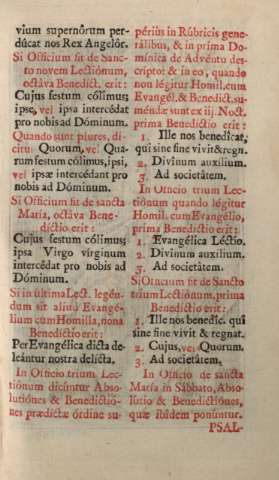 vium supernórum per-
dúcat nos Rex Angelór.
Si Officium fit de Sanc-
to novem Lectiónum,
octáva Benedict. erit:
Cujus festum cólimus;
ipse, vel ipsa intercédat
pro nobis ad Dóminum.
Quando sunt plures, di-
citur Quorum, vel Qua-
rum festum cólimus, ipsi,
vel ipsæ intercédant pro
nobis ad Dóminum.
Si Officium fit de sancta
María, octáva Bene-
dictio erit:
Cujus festum cólimus;
ipsa Virgo vírginum
intercédat pro nobis ad
Dóminum.
Si in última Lect. legén-
dum sit áliud Evangé-
lium cum Homilía, nona
Benedíctio erit:
Per Evangélica dicta de-
leántur nostra delícta.
In Officio trium Lec-
tiónum dicúntur Abso-
lutiónes & Benedictió-
nes prædictæ órdine su-
périùs in Rúbricis gene-
rálibus, & in prima Do-
mínica de Advéntu des-
cripto: & in eo, quando
non légitur Homil. cum
Evangél. & Benedict. su-
méndæ sunt ex iij. Noct.
prima Benedíctio erit:
1. Ille nos benedícat,
qui sine fine vivit & regn.
2. Divínum auxílium.
3. Ad societátem.
In Officio trium Lec-
tiónum quando légitur
Homil. cum Evangélio,
prima Benedíctio erit:
1. Evangélica Léctio.
2. Divínum auxílium.
3. Ad societátem.
Si Officium fit de Sancto
trium Lectiónum, prima
Benedíctio erit:
1. Ille nos benedíc. qui
sine fine vivit & regnat.
2. Cujus, vel Quorum.
3. Ad societátem.
In Officio de sancta
María in Sábbato, Abso-
lútio & Benedictiónes,
quæ ibídem ponúntur.
PSAL-